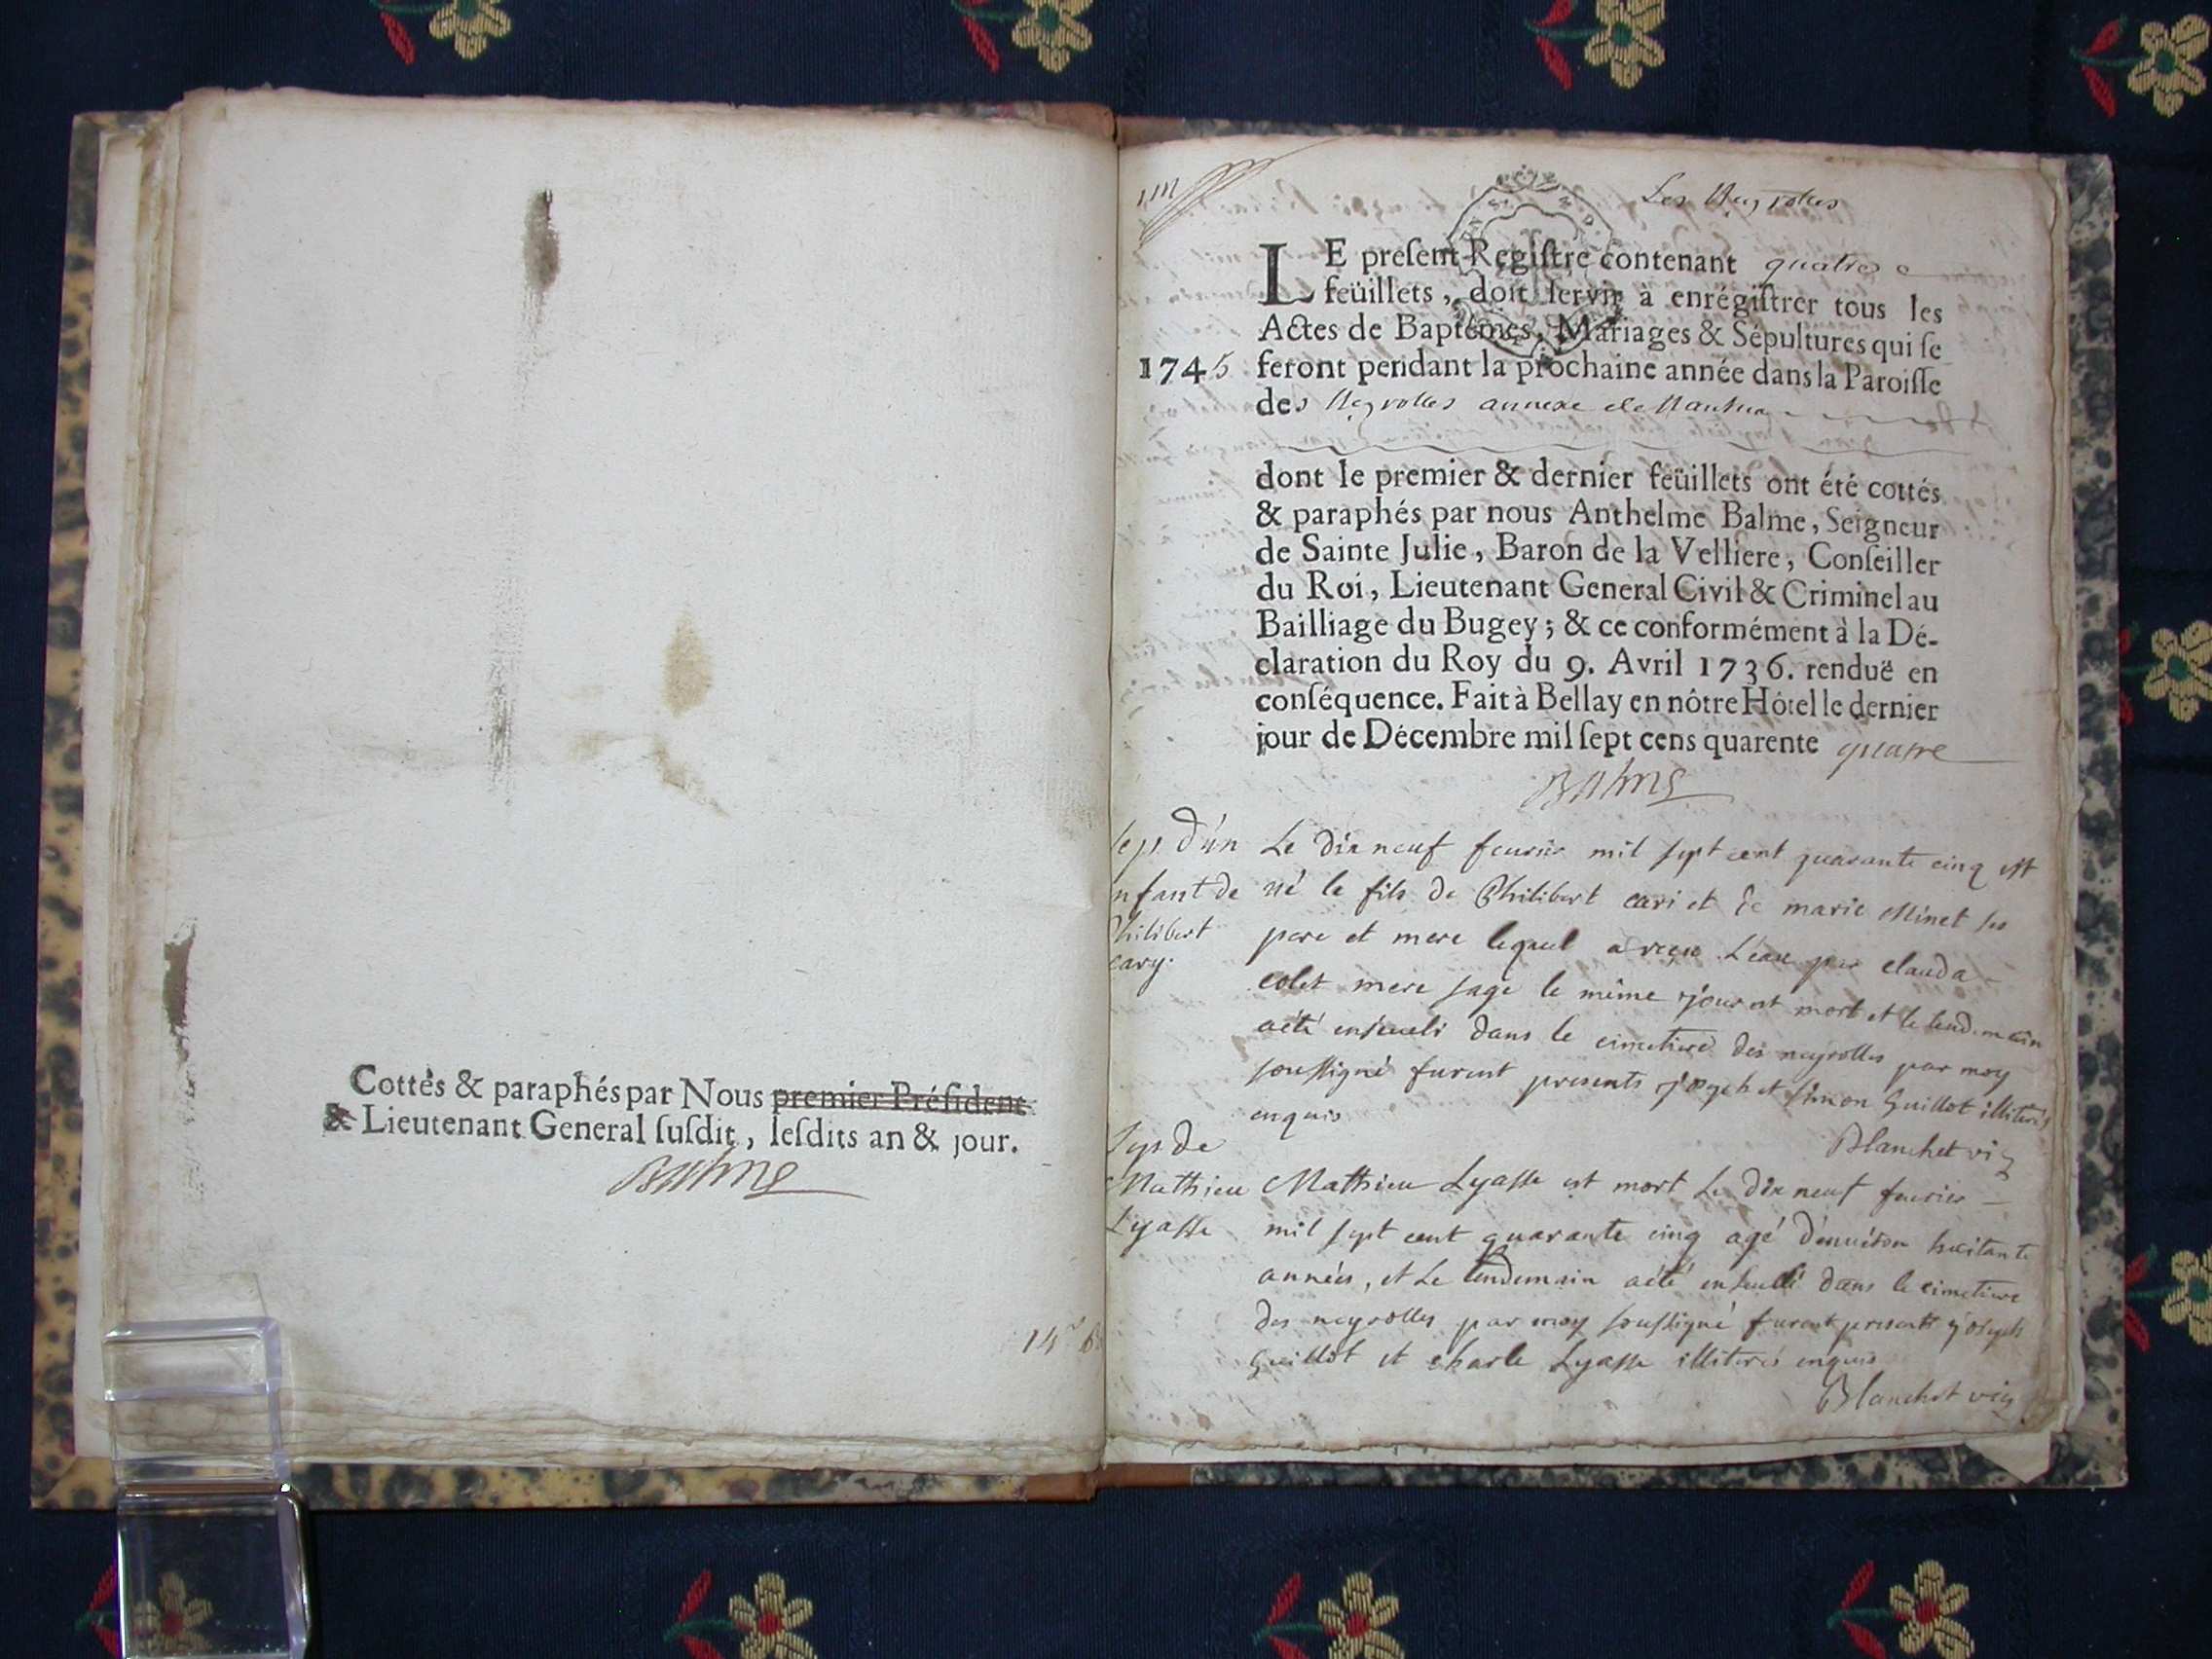 Cottés & paraphés par Nous premier Président
& Lieutenant General susdit, lesdits an & jour.
Balme
Les Neyrolles
LE preſent Regiſtre contenant quatre
feüillets, doit ſervir à enrégiſtrer tous les
Actes de Baptêmes, Mariages & Sépultures qui ſe
1745 feront pendant la prochaine année dans la Paroiſſe
des Neyrolles annexe de Nantua
dont le premier & dernier feüillets ont été cottés
& paraphés par nous Anthelme Balme, Seigneur
de Sainte Julie, Baron de la Velliere, Conſeiller
du Roi, Lieutenant General Civil & Criminel au
Bailliage du Bugey; & ce conformément à la Dé-
claration du Roy du 9. Avril 1736. renduë en
conſéquence. Fait à Bellay en nôtre Hôtel le dernier
jour de Décembre mil ſept cens quarente quatre
Balme
sep. d'un
nfant de
Philibert
cary.
Le dix neuf feurier mil sept cent quarante cinq est
né le fils de Philibert cari et de marie Minet ses
pere et mere lequel a reçu l'eau par clauda
colet mere sage le même jour est mort et le lendemain
aété enseueli dans le cimetiere des neyrolles par moy
soussigné furent presents joseph et simon Guillot illiterés
enquis
Blanchet vic
Sep. de
Mathieu
Lyasse
Mathieu Lyasse est mort Le dix neuf feurier
mil sept cent quarante cinq agé d'enuiron huitante
années, et Le lendemain aété enseueli dans le cimetiere
des neyrolles par moy soussigné furent presents joseph
guillot et charle Lyasse illiterés enquis
Blanchet vic